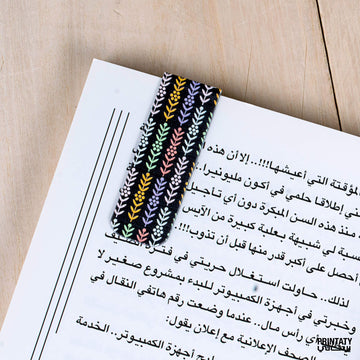 مؤقتة التي أعيشها!!!.. إلا أن هذه
في إطلاقا حلمي في أكون مليونيرا.
منذ هذه السن المبكرة دون أي تأجيل
سبة لي شبيهة بعلبة كبيرة من الآيس
أحصل على أكبر قدر منها قبل أن تذوب!!!
لذلك.. حاولت استغلال حريتي في فترة
وخبرتي في أجهزة الكمبيوتر للبدء بمشروع صغير لا
أي رأس مال.. عندما وضعت رقم هاتفي النقال في
الصحف الإعلانية مع إعلان يقول:
أجهزة الكمبيوتر.. الخدمة
PRINTATY